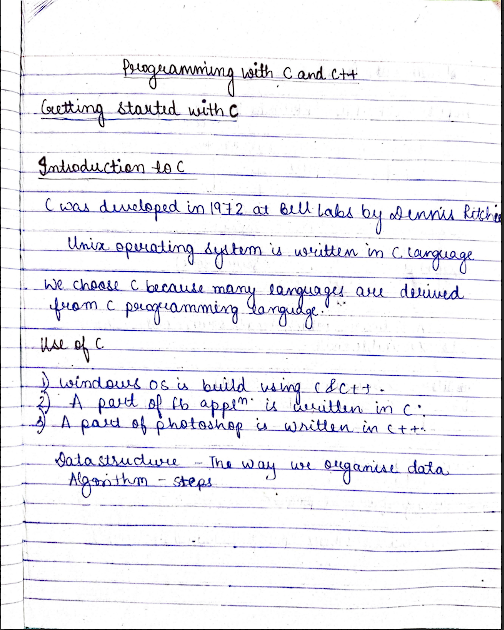 Programming with C and C++
Getting started with C
Introduction to C
C was developed in 1972 at Bell Labs by Dennis Ritchie
Unix operating system is written in C language
We choose C because many languages are derived
from C programming language.
Use of C
1) Windows OS is build using C & C++.
2) A part of fb appln. is written in C.
3) A part of photoshop is written in C++.
Datastructure - The way we organise data
Algorithm - steps